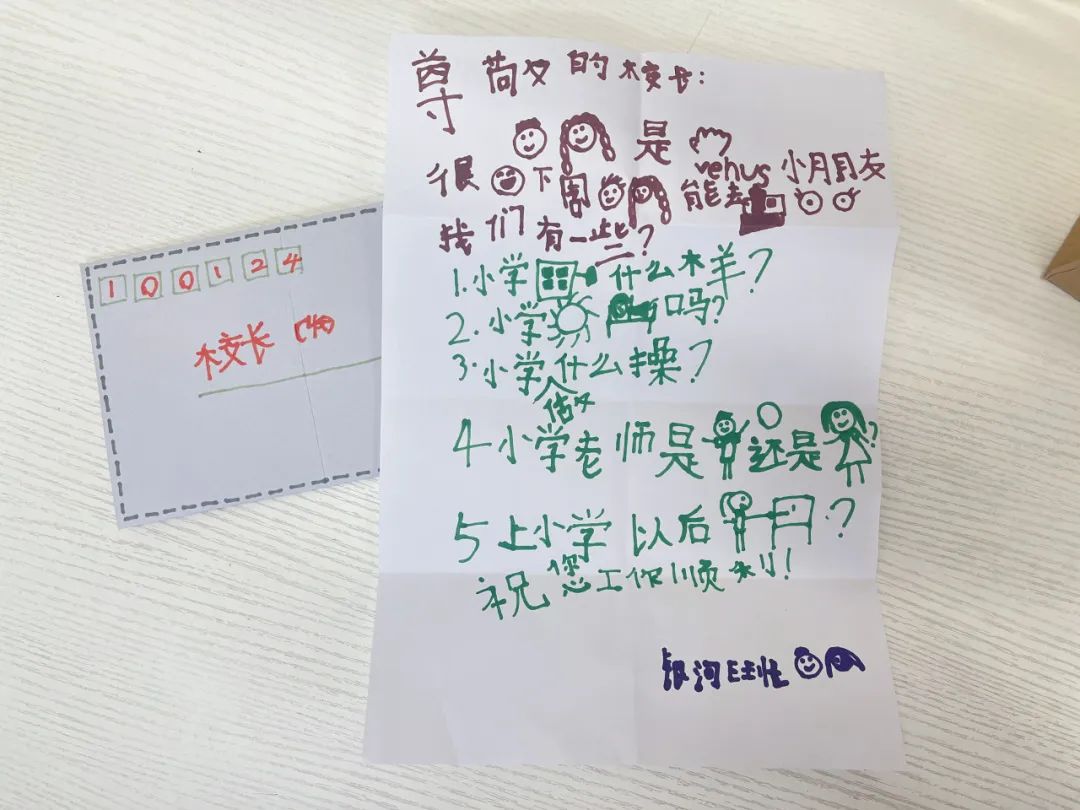 100124
校长
尊敬的校长:
是
venus小朋友
很 下周 能去
我们有一些?
1.小学 什么样?
2.小学 吗?
3.小学做什么操?
4 小学老师是 还是 ?
5 上小学以后 ?
祝您工作顺利!
银河